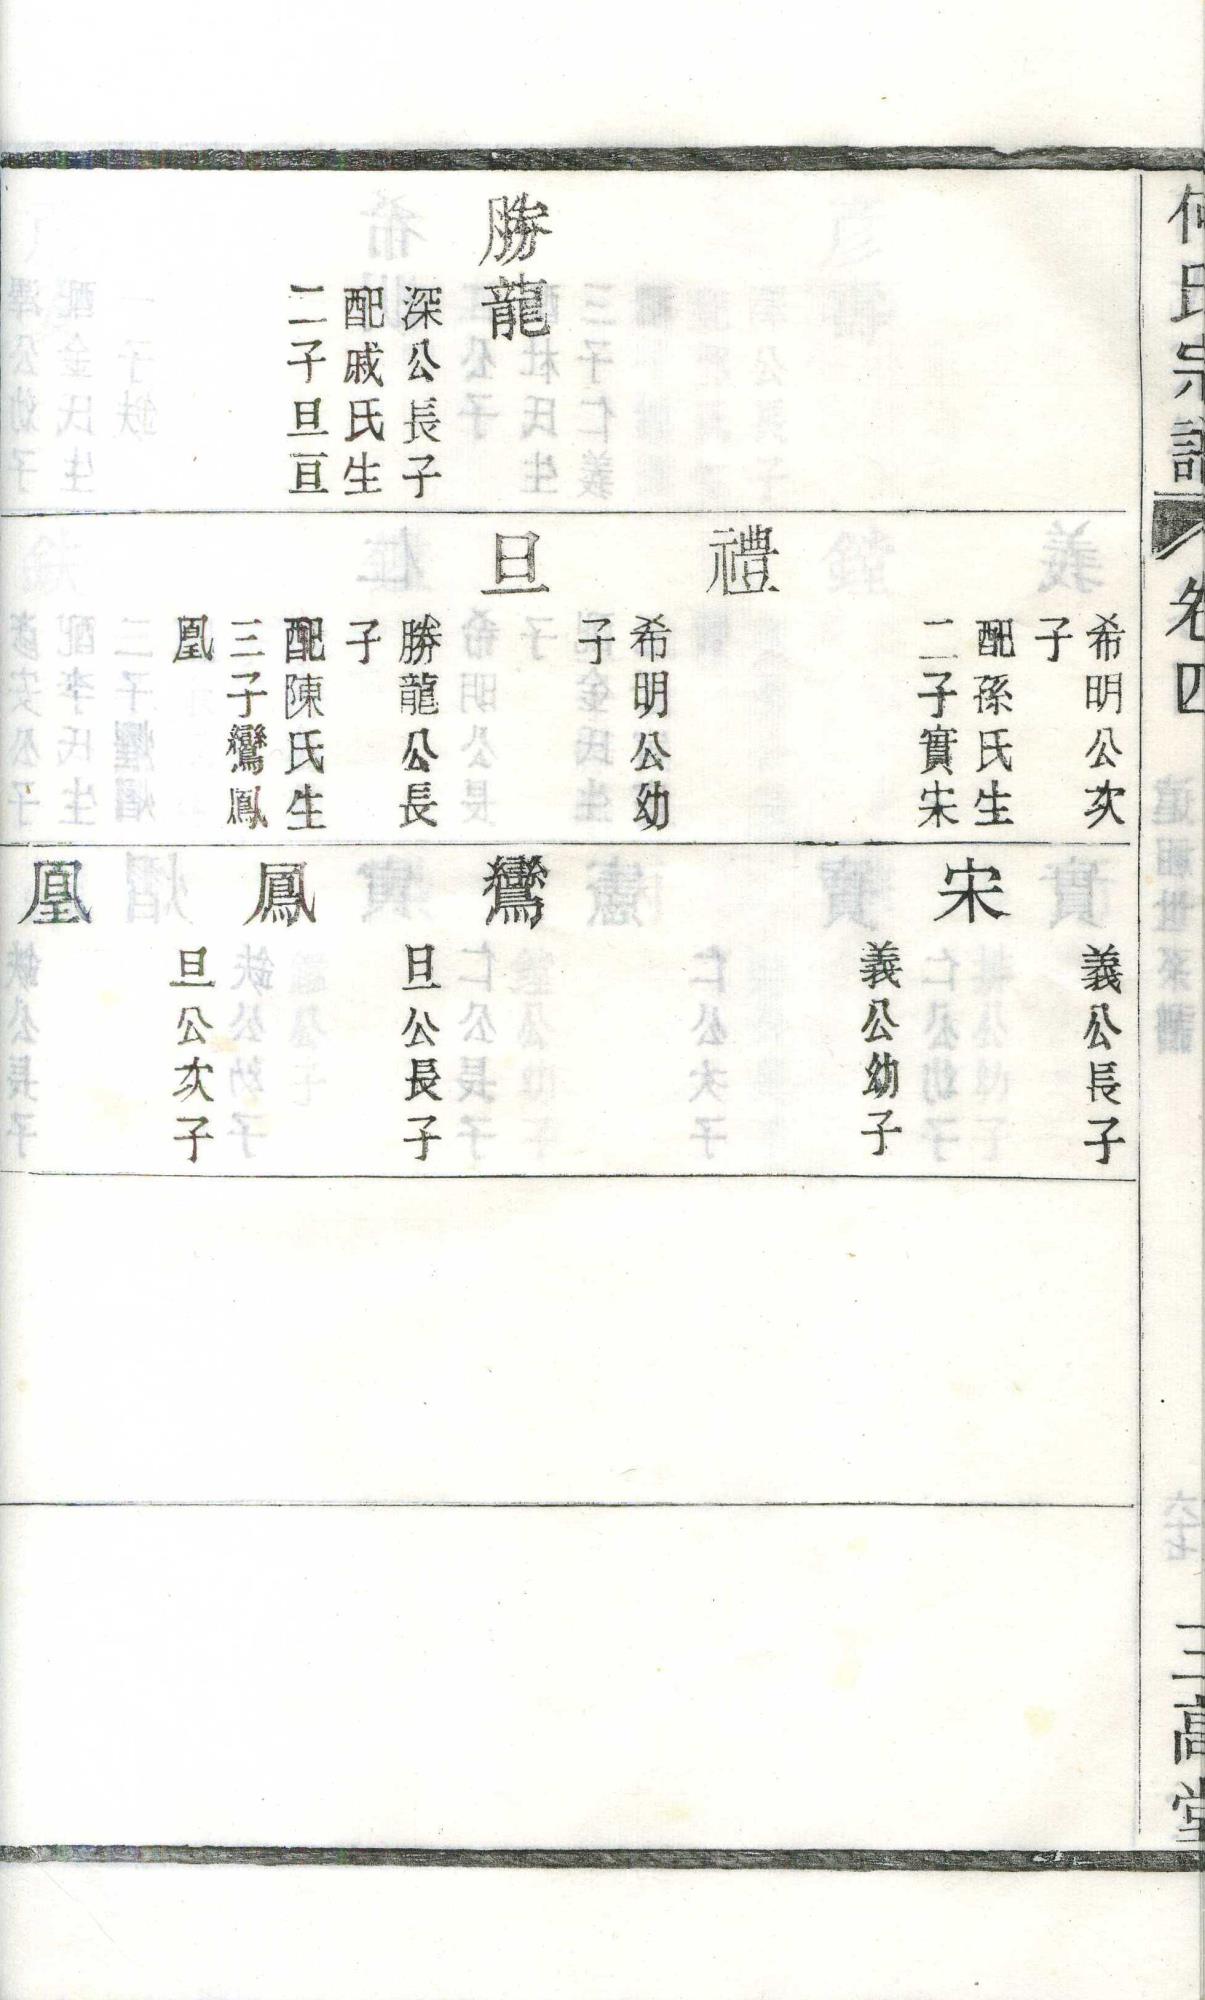 何氏宗譜
卷四
三高堂
勝龍
深公長子
配戚氏生
二子旦亘
希明公次
子
配孫氏生
二子實宋
禮
希明公幼
子
旦
勝龍公長
子
配陳氏生
三子鸞鳳
凰
義公長子
宋
義公幼子
鸞
旦公長子
鳳
旦公次子
凰